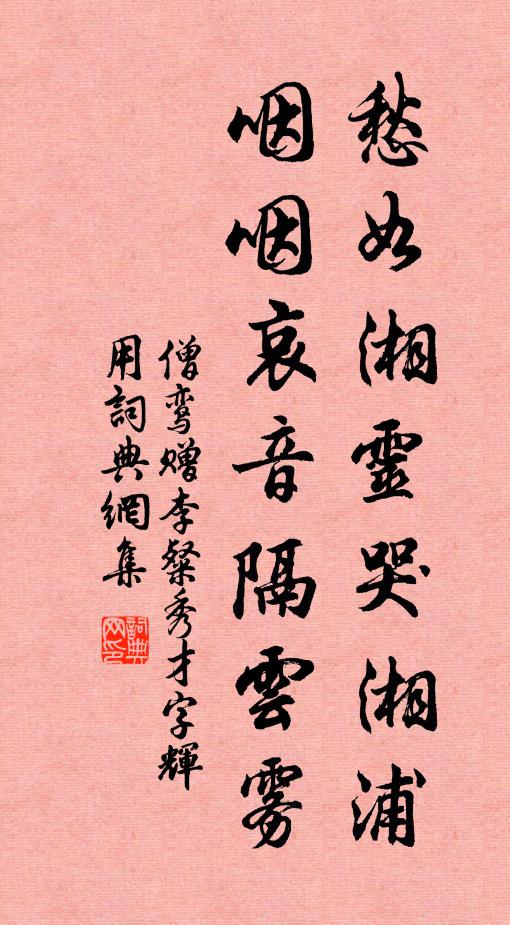 愁如湘靈哭湘浦
咽咽哀音隔雲雾
僧鸾赠李粲秀才字輝
用詞典網集
詞典
网印